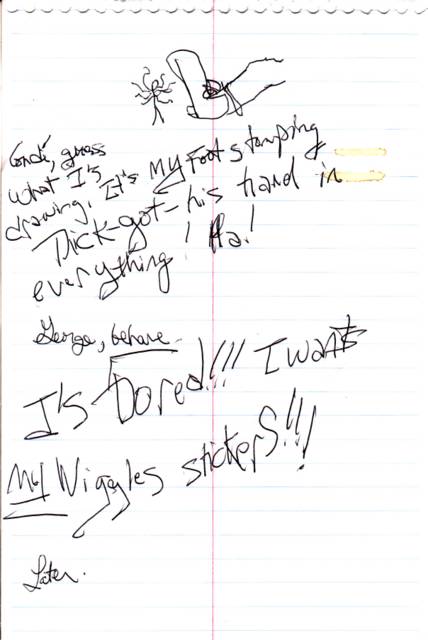 Condi, guess
what I's
drawing. It's MY Foot stomping
Dick-got-his hand in
everything! Ha!
George, behave.
I's bored!!! I wants
MY Wiggles stickers!!!
Later.